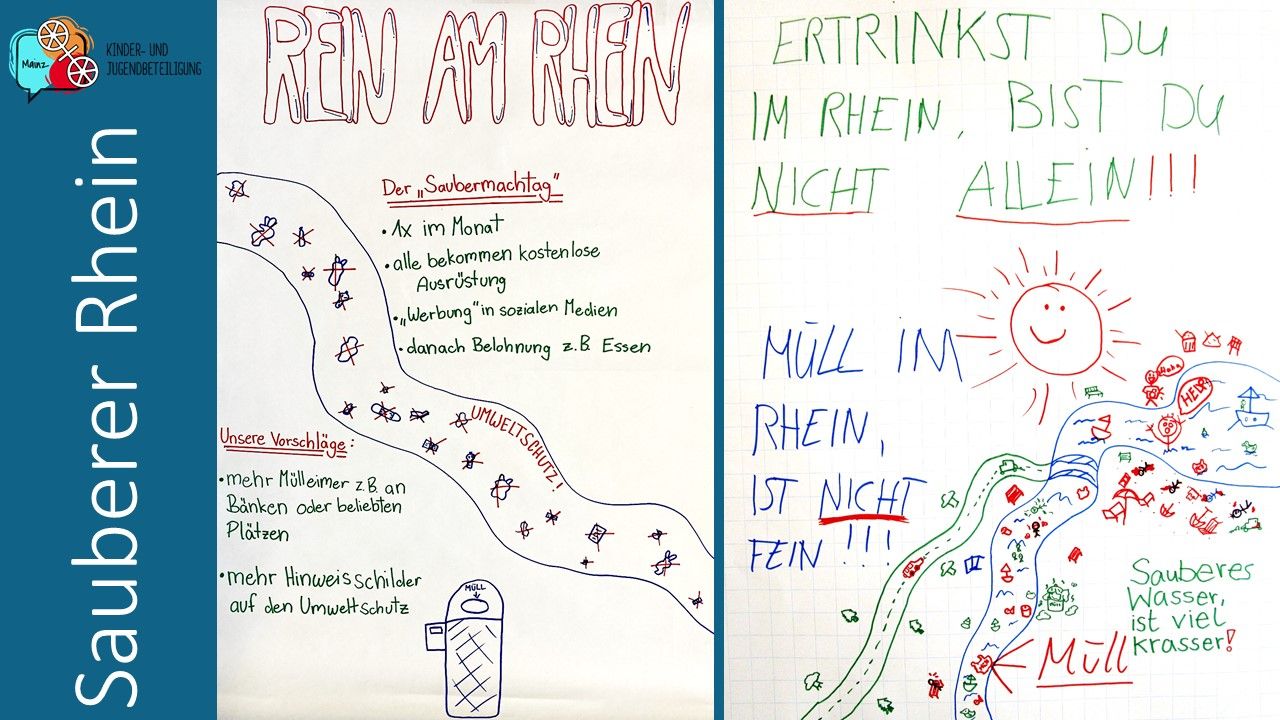 Mainz
KINDER- UND
JUGENDBETEILIGUNG
Sauberer Rhein
REIN AM RHEIN
Der „Saubermachtag“
• 1x im Monat
• alle bekommen kostenlose
Ausrüstung
• „Werbung“ in sozialen Medien
• danach Belohnung z.B. Essen
UMWELTSCHUTZ!
Unsere Vorschläge:
• mehr Mülleimer z.B. an
Bänken oder beliebten
Plätzen
• mehr Hinweisschilder
auf den Umweltschutz
MÜLL
ERTRINKST DU
IM RHEIN, BIST DU
NICHT ALLEIN!!!
MÜLL IM
RHEIN,
IST NICHT
FEIN!!!
Haha
HELP
Sauberes
Wasser,
ist viel
krasser!
Müll